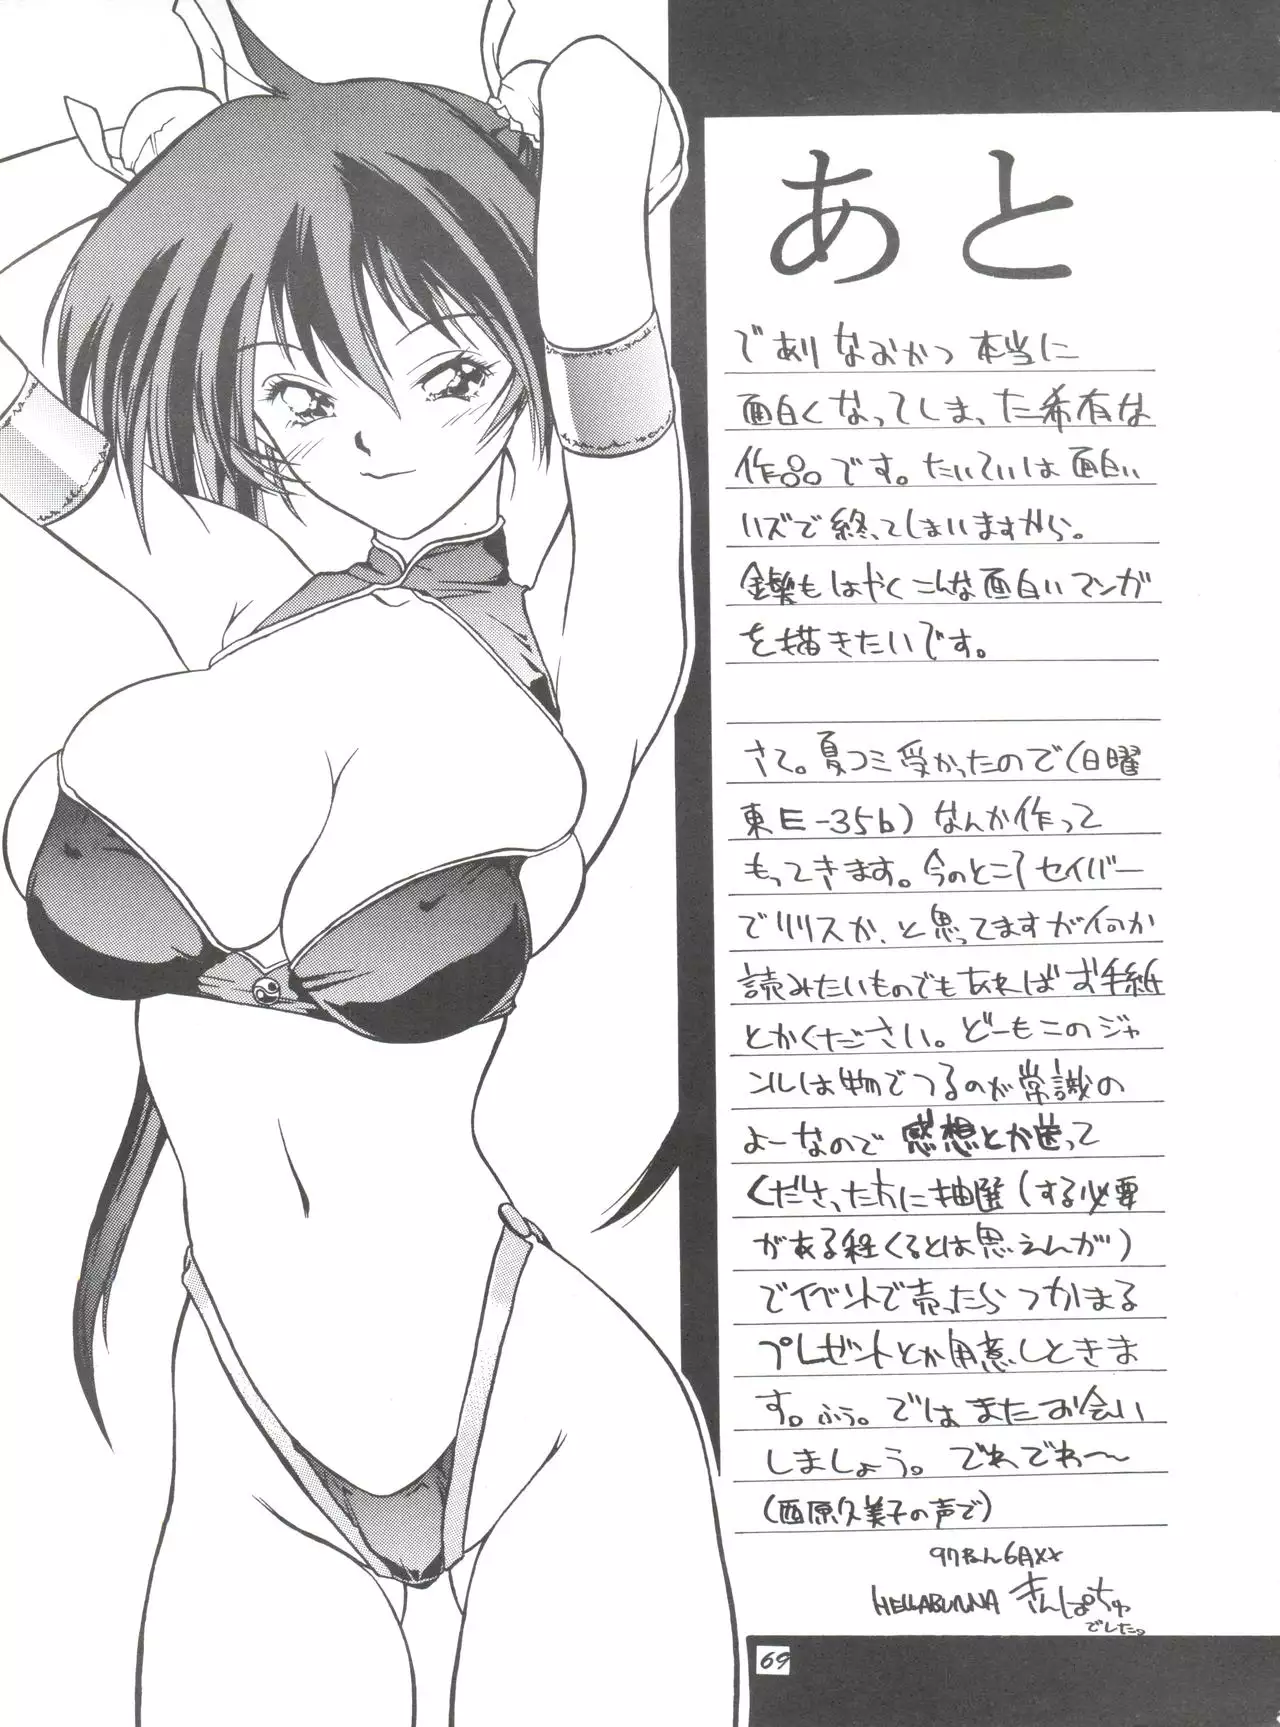 あと
でありなおかつ本当に
面白くなってしまった希有な
作品です。たいていは面白い
ハズで終ってしまいますから。
もはやくこんな面白いマンガ
を描きたいです。
さて。夏コミ受かったので(日曜
東E-35b)なんか作って
もってきます。今のとこ セイバー
でリリスか、と思ってますが何か
読みたいものでもあればお手紙
とかください。どーもこのジャ
ンルは物でつるのが常識の
よーなので 感想とか送って
くださった方に抽選(する必要
がある程くるとは思えんが)
でイベントで売ったらつかまる
プレゼントとか用意しときま
す。ふぅ。ではまたお会い
しましょう。でわでわ〜
(西原久美子の声で)
97ねん6月××
HELLABUNNA きんぱちゅ
でした。
69